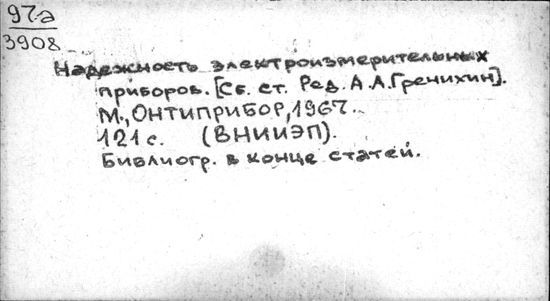 97-а
3908
Надежность электроизмерительных
приборов. [Сб. ст. Ред. А.А.Гречихин].
М., ОНТИПРИБОР, 1967.
121 с. (ВНИИЭП).
Библиогр. в конце статей.